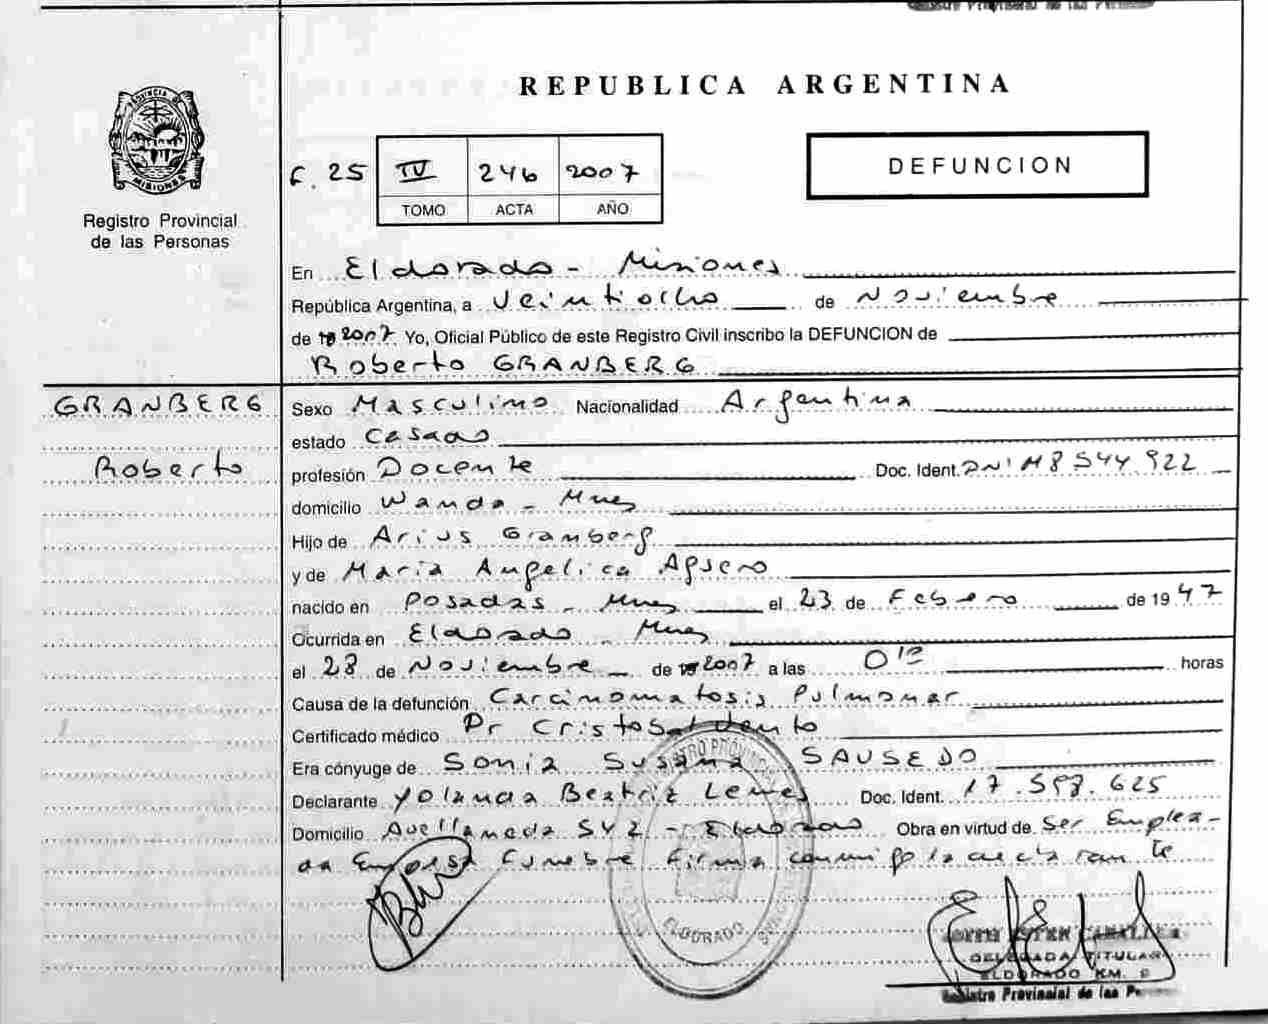 Registro Provincial de las Personas
REPUBLICA ARGENTINA
PROVINCIA DE
MISIONES
Registro Provincial
de las Personas
F. 25
IV 246 2007
TOMO ACTA AÑO
DEFUNCION
En Eldorado - Misiones
República Argentina, a Veintiocho de Noviembre
de 2007 Yo, Oficial Público de este Registro Civil inscribo la DEFUNCION de
Roberto GRANBERG
GRANBERG
Roberto
Sexo Masculino Nacionalidad Argentina
estado Casado
profesión Docente Doc. Ident. DNI M8544922
domicilio Wanda - Mnes
Hijo de Arius Granberg
y de Maria Angelica Aguero
nacido en Posadas - Mnes el 23 de Febrero de 1947
Ocurrida en Eldorado - Mnes
el 28 de Noviembre de 2007 a las 0 horas
Causa de la defunción Carcinomatosis Pulmonar
Certificado médico Dr Cristos Vento
Era cónyuge de Sonia Susana SAUSEDO
Declarante Yolanda Beatriz Lemes Doc. Ident. 17.598.625
Domicilio Avellaneda 542 - Eldorado Obra en virtud de Ser Emplea-
da Empresa Funebre Firma conmigo la declarante
REGISTRO PROVINCIAL
ELDORADO
DELEGADA TITULAR
ELDORADO KM. 9
Registro Provincial de las